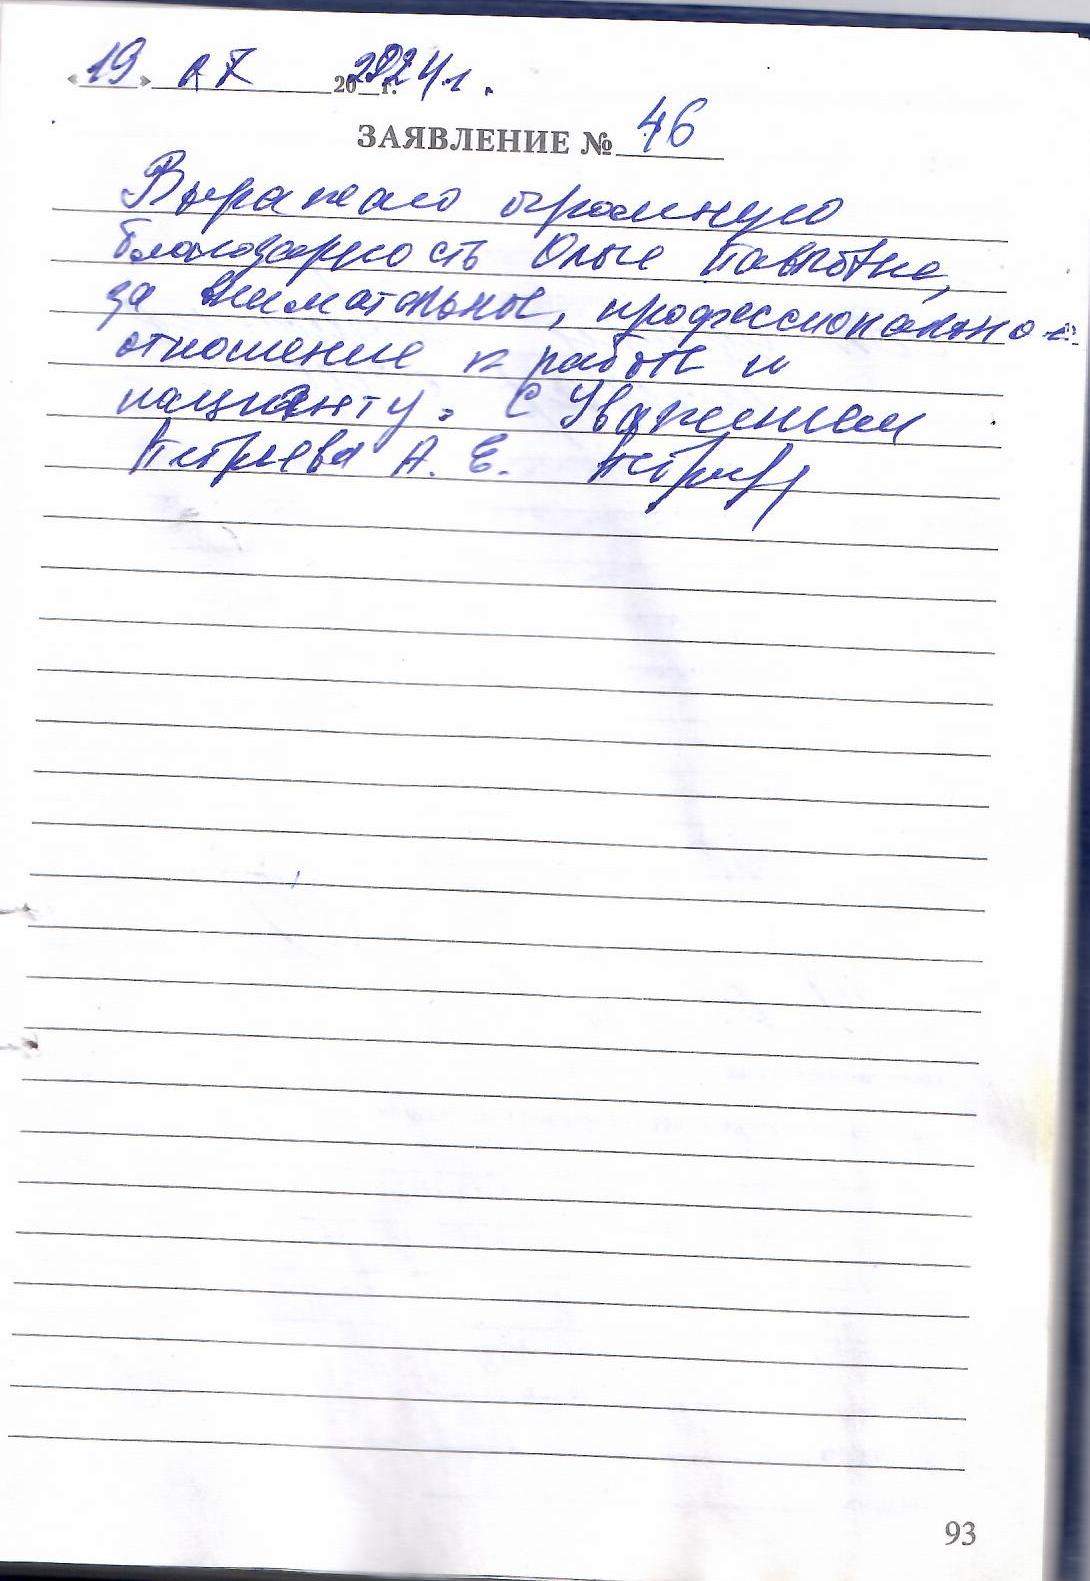 «19» 07 2024 г.
ЗАЯВЛЕНИЕ № 46
Выражаю огромную
благодарность Ольге Павловне,
за внимательное, профессионально-е
отношение к работе и
пациенту. С Уважением
Петриева А. Е.
93